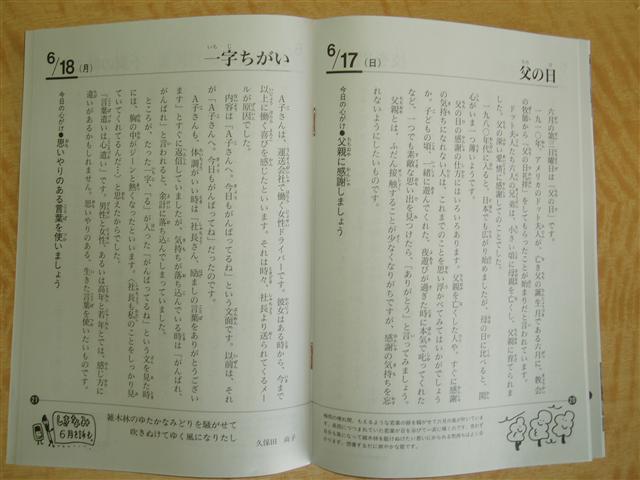 6/17(日)
父の日
六月の第三日曜日は「父の日」です。
一九一〇年、アメリカのドット夫人が、亡き父の誕生月である六月に、教会
の牧師から「父の日礼拝」をしてもらったことが始まりだと言われています。
ドット夫人たち六人の兄弟は、小さい頃に母親を亡くし、父親に育てられま
した。父の深い愛情に感謝してのことでした。
一九八〇年代に入ると、日本でも広がり始めましたが、母の日に比べると、関
心がいま一つ薄いようです。
父の日の感謝の仕方にはいろいろあります。父親を亡くした人や、すぐに感謝
の気持ちになれない人は、これまでのことを思い浮かべてみてはいかがでしょう
か。子どもの頃、一緒に遊んでくれた、夜遊びが過ぎた時に本気で叱ってくれた
など、一つでも素敵な思い出を見つけたら、「ありがとう」と言ってみましょう。
父親とは、ふだん接触することが少なくなりがちですが、感謝の気持ちを忘
れないようにしたいものです。
今日の心がけ●父親に感謝しましょう
20
6/18(月)
一字ちがい
A子さんは、運送会社で働く女性ドライバーです。彼女はある時から、今まで
以上に働く喜びを感じたといいます。それは時々、社長より送られてくるメー
ルが原因でした。
内容は「A子さんへ。今日もがんばってるね」という文面です。以前は、それ
が「A子さんへ。今日もがんばってね」だったのです。
A子さんも、体調がいい時は「社長さん、励ましの言葉をありがとうござい
ます」とすぐに返信していましたが、気持ちが落ち込んでいる時は「がんばれ、
がんばれ」と言われると、余計に落ち込んでしまっていました。
ところが、たった一字、「る」が入った「がんばってるね」という文を見た時
には、胸の中がジーンと熱くなったといいます。〈社長も私のことをしっかり見
ていてくれてるんだ…〉と思えたからでした。
「言葉遣いは心遣い」です。男性と女性、あるいは高年と若年とでは、感じ方に
違いがあるかもしれません。思いやりのある、生きた言葉を使いたいものです。
今日の心がけ●思いやりのある言葉を使いましょう
21
雑木林のゆたかなみどりを騒がせて
吹きぬけてゆく風になりたし
久保田